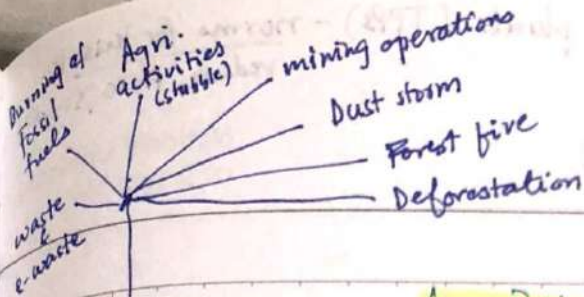 Burning of
Fossil
fuels
Agri.
activities
(stubble)
mining operations
Dust storm
Forest fire
Deforestation
waste
&
e-waste